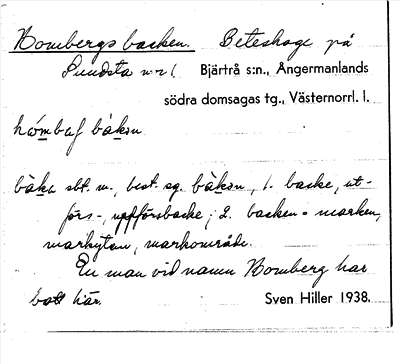 Bombergs backen. Beteshage på
Sundsta nr 1 Bjärtrå s:n., Ångermanlands
södra domsagas tg., Västernorrl. l.
bàka sbt. m., best. sg. bàkən, 1. backe, ut-
förs-, uppförsbacke; 2. backen = marken,
markytan, markområde.
En man vid namn Bomberg har
bott här. Sven Hiller 1938.